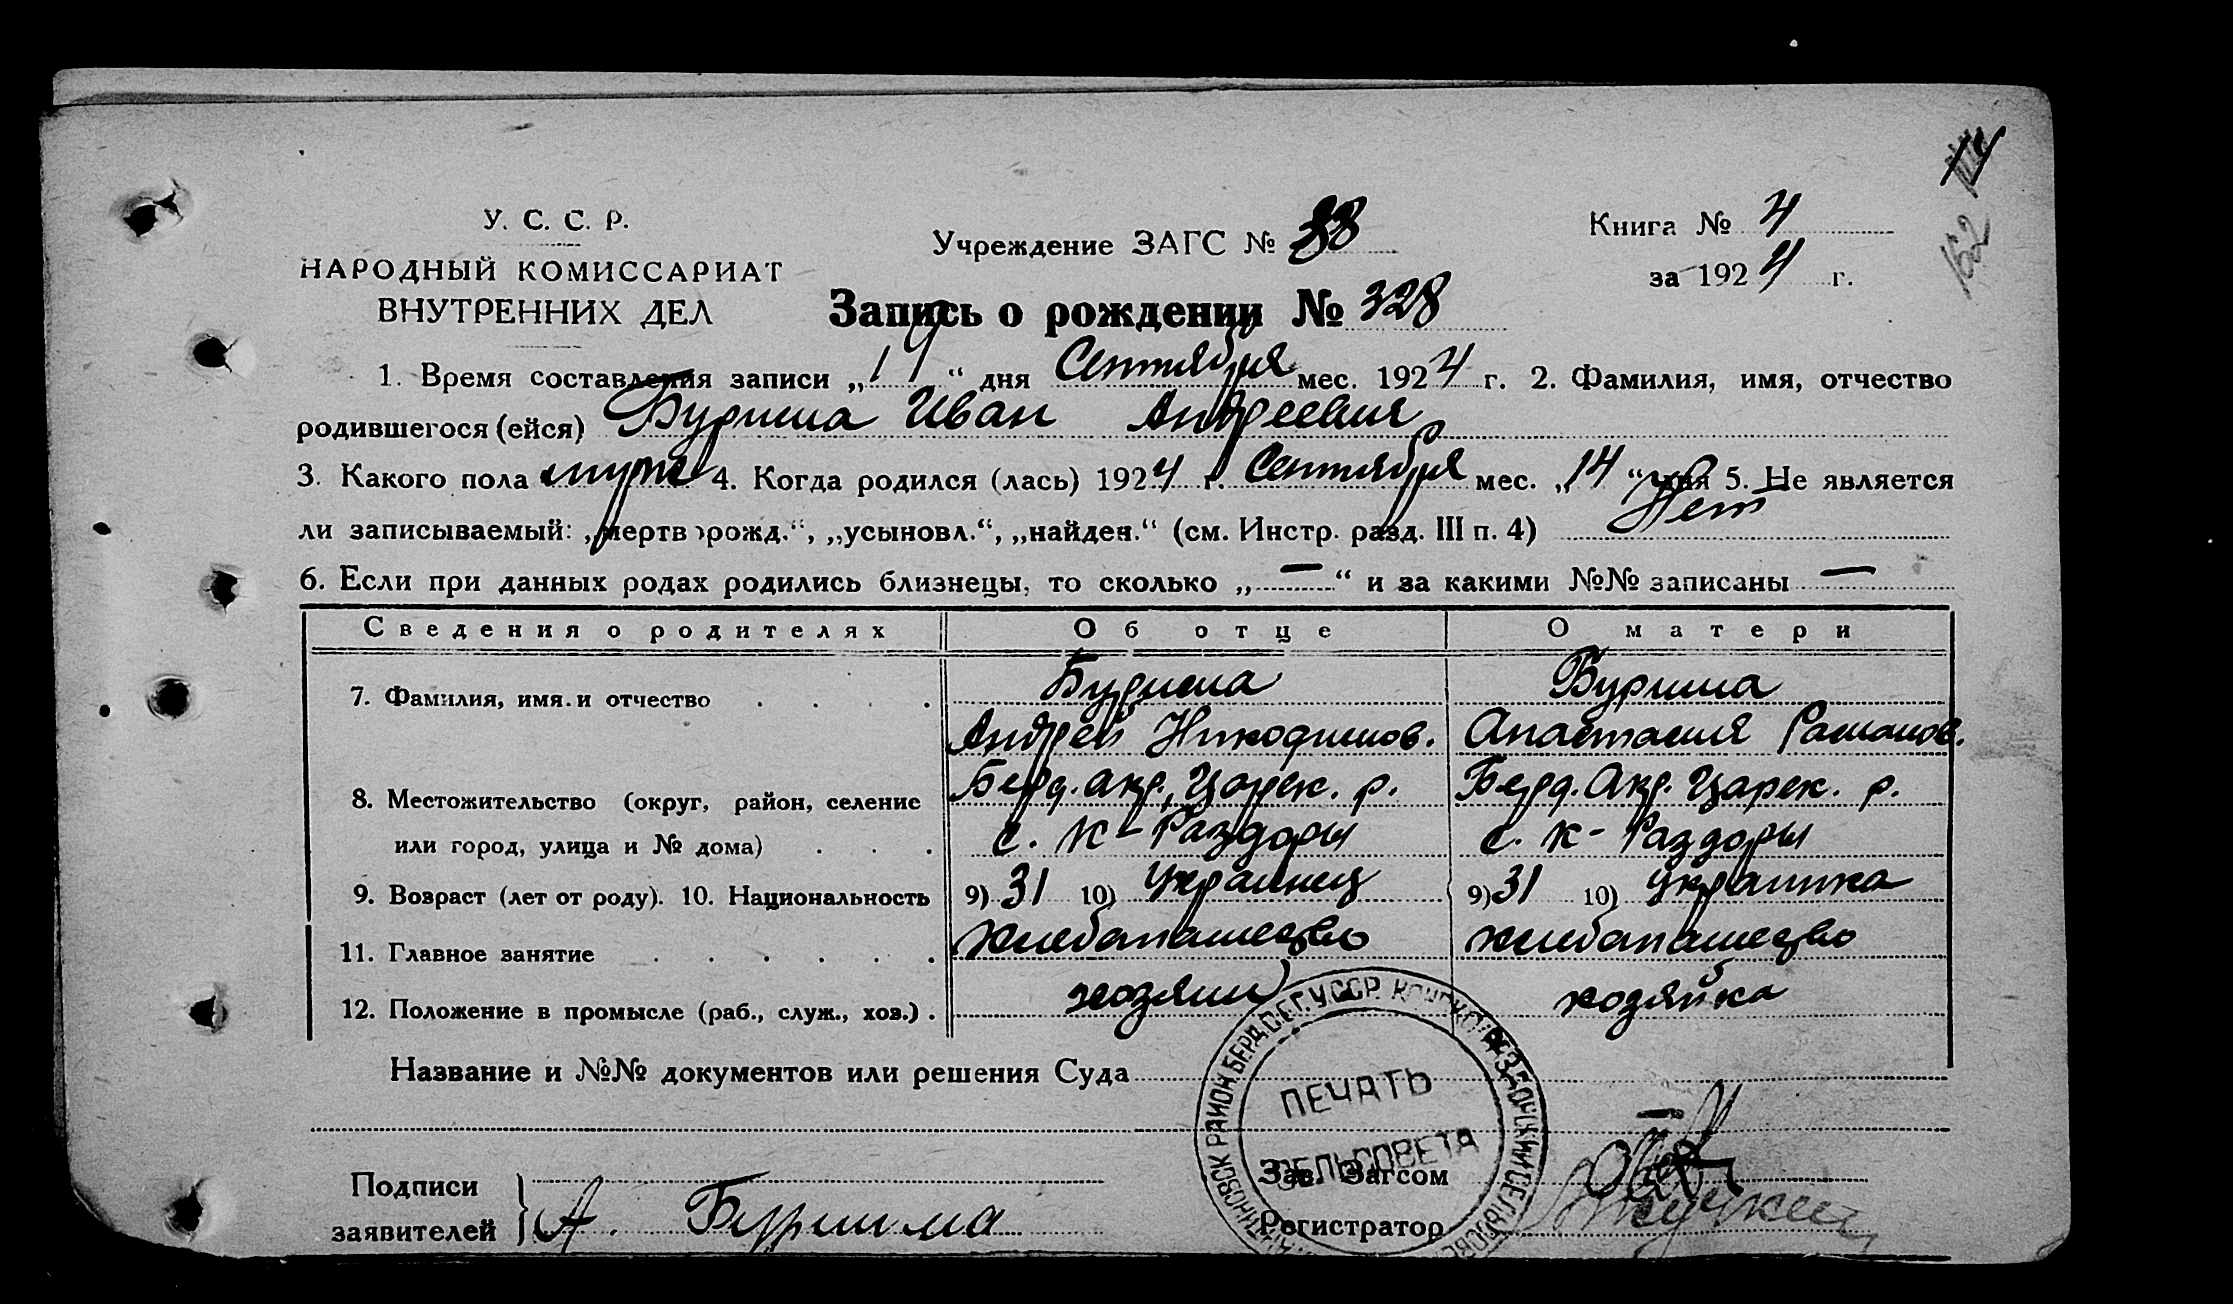 У. С. С. Р.
НАРОДНЫЙ КОМИССАРИАТ
ВНУТРЕННИХ ДЕЛ
Учреждение ЗАГС № 38
Книга № 4
за 1924 г.
162
Запись о рождении № 328
1. Время составления записи „19“ дня Сентября мес. 1924 г. 2. Фамилия, имя, отчество
родившегося (ейся) Бурима Иван Андреевич
3. Какого пола муж 4. Когда родился (лась) 1924 г. Сентября мес. „14“ дня 5. Не является
ли записываемый: „мертворожд.“, „усыновл.“, „найден.“ (см. Инстр. разд. III п. 4) Нет
6. Если при данных родах родились близнецы, то сколько „—“ и за какими №№ записаны —
Сведения о родителях Об отце О матери
7. Фамилия, имя и отчество Бурима Бурима
Андрей Никодимов. Анастасия Роман��в.
8. Местожительство (округ, район, селение Берд. окр. Царек. р. Берд. Окр. Царек. р.
или город, улица и № дома) с. К-Раздоры с. К-Раздоры
9. Возраст (лет от роду). 10. Национальность 9) 31 10) Украинец 9) 31 10) Украинка
11. Главное занятие хлебопашество хлебопашество
12. Положение в промысле (раб., служ., хоз.) хозяин хозяйка
Название и №№ документов или решения Суда
—
ПЕЧАТЬ
СЕЛЬСОВЕТА
Подписи
заявителей } А. Бурима
Зав. Загсом
Регистратор